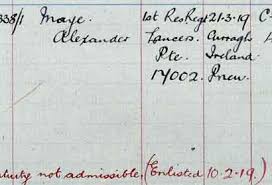 338/1 Maye. 1st Res Regt 21-3-19 C
Alexander Lancers. Curragh A
Pte. Ireland.
17002. Pnew.
not admissible, (Enlisted 10.2.19.)